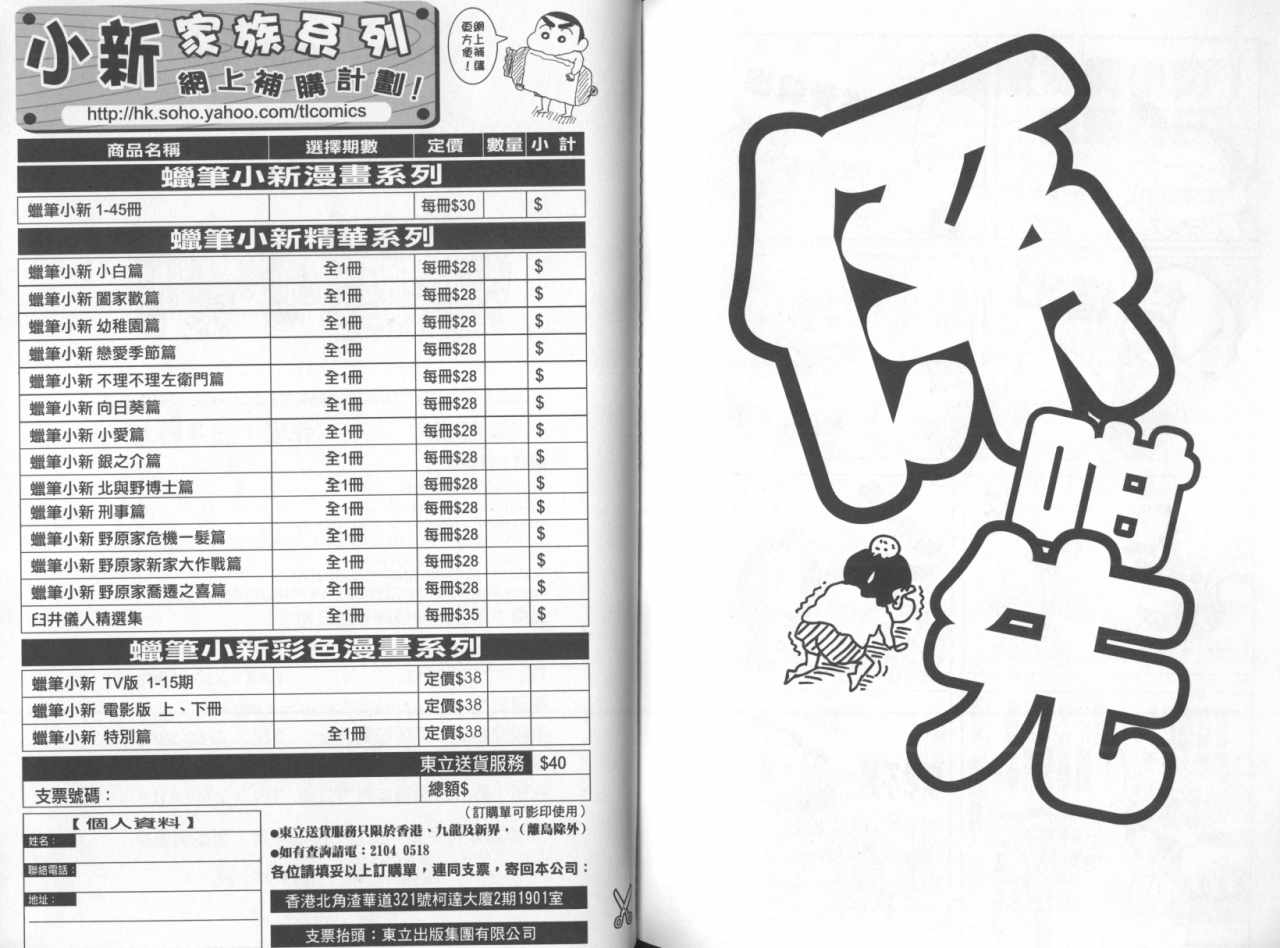 小新家族系列
網上補購計劃！
http://hk.soho.yahoo.com/tlcomics
網上補購
更方便！
商品名稱 選擇期數 定價 數量 小計
蠟筆小新漫畫系列
蠟筆小新 1-45冊 每冊$30 $
蠟筆小新精華系列
蠟筆小新 小白篇 全1冊 每冊$28 $
蠟筆小新 闔家歡篇 全1冊 每冊$28 $
蠟筆小新 幼稚園篇 全1冊 每冊$28 $
蠟筆小新 戀愛季節篇 全1冊 每冊$28 $
蠟筆小新 不理不理左衛門篇 全1冊 每冊$28 $
蠟筆小新 向日葵篇 全1冊 每冊$28 $
蠟筆小新 小愛篇 全1冊 每冊$28 $
蠟筆小新 銀之介篇 全1冊 每冊$28 $
蠟筆小新 北與野博士篇 全1冊 每冊$28 $
蠟筆小新 刑事篇 全1冊 每冊$28 $
蠟筆小新 野原家危機一髮篇 全1冊 每冊$28 $
蠟筆小新 野原家新家大作戰篇 全1冊 每冊$28 $
蠟筆小新 野原家喬遷之喜篇 全1冊 每冊$28 $
臼井儀人精選集 全1冊 每冊$35 $
蠟筆小新彩色漫畫系列
蠟筆小新 TV版 1-15期 定價$38
蠟筆小新 電影版 上、下冊 定價$38
蠟筆小新 特別篇 全1冊 定價$38
東立送貨服務 $40
支票號碼： 總額$
（訂購單可影印使用）
【個人資料】
姓名：
聯絡電話：
地址：
●東立送貨服務只限於香港、九龍及新界，（離島除外）
●如有查詢請電：2104 0518
各位請填妥以上訂購單，連同支票，寄回本公司：
香港北角渣華道321號柯達大廈2期1901室
支票抬頭：東立出版集團有限公司
係
咁
先